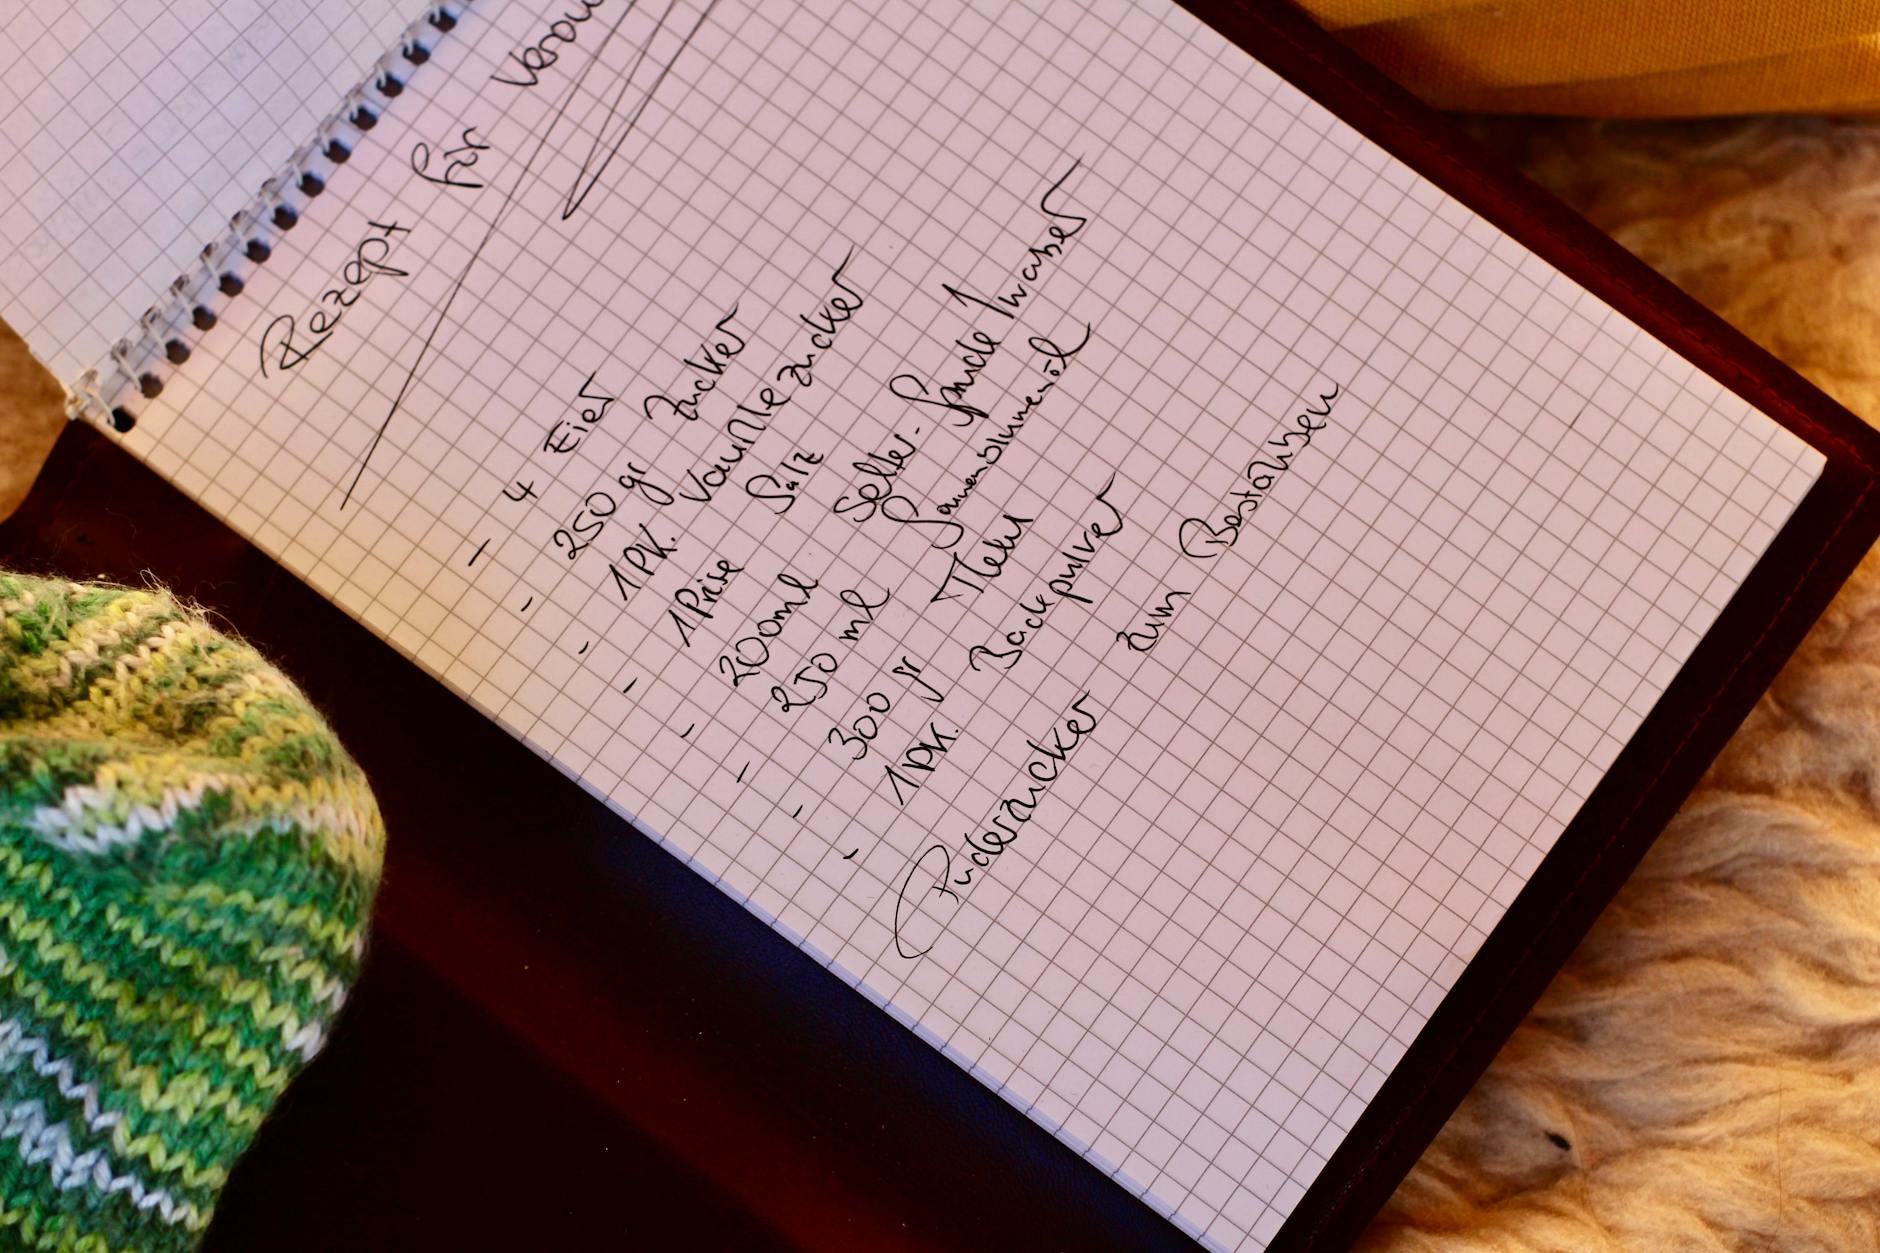 Rezept für Veron
- 4 Eier
- 250 gr Zucker
- 1 PK. Vanillezucker
- 1 Prise Salz
- 200ml Selter- Sprudelwasser
- 250 ml Sonnenblumenöl
- 300 gr Mehl
- 1 PK. Backpulver
Puderzucker zum Bestäuben